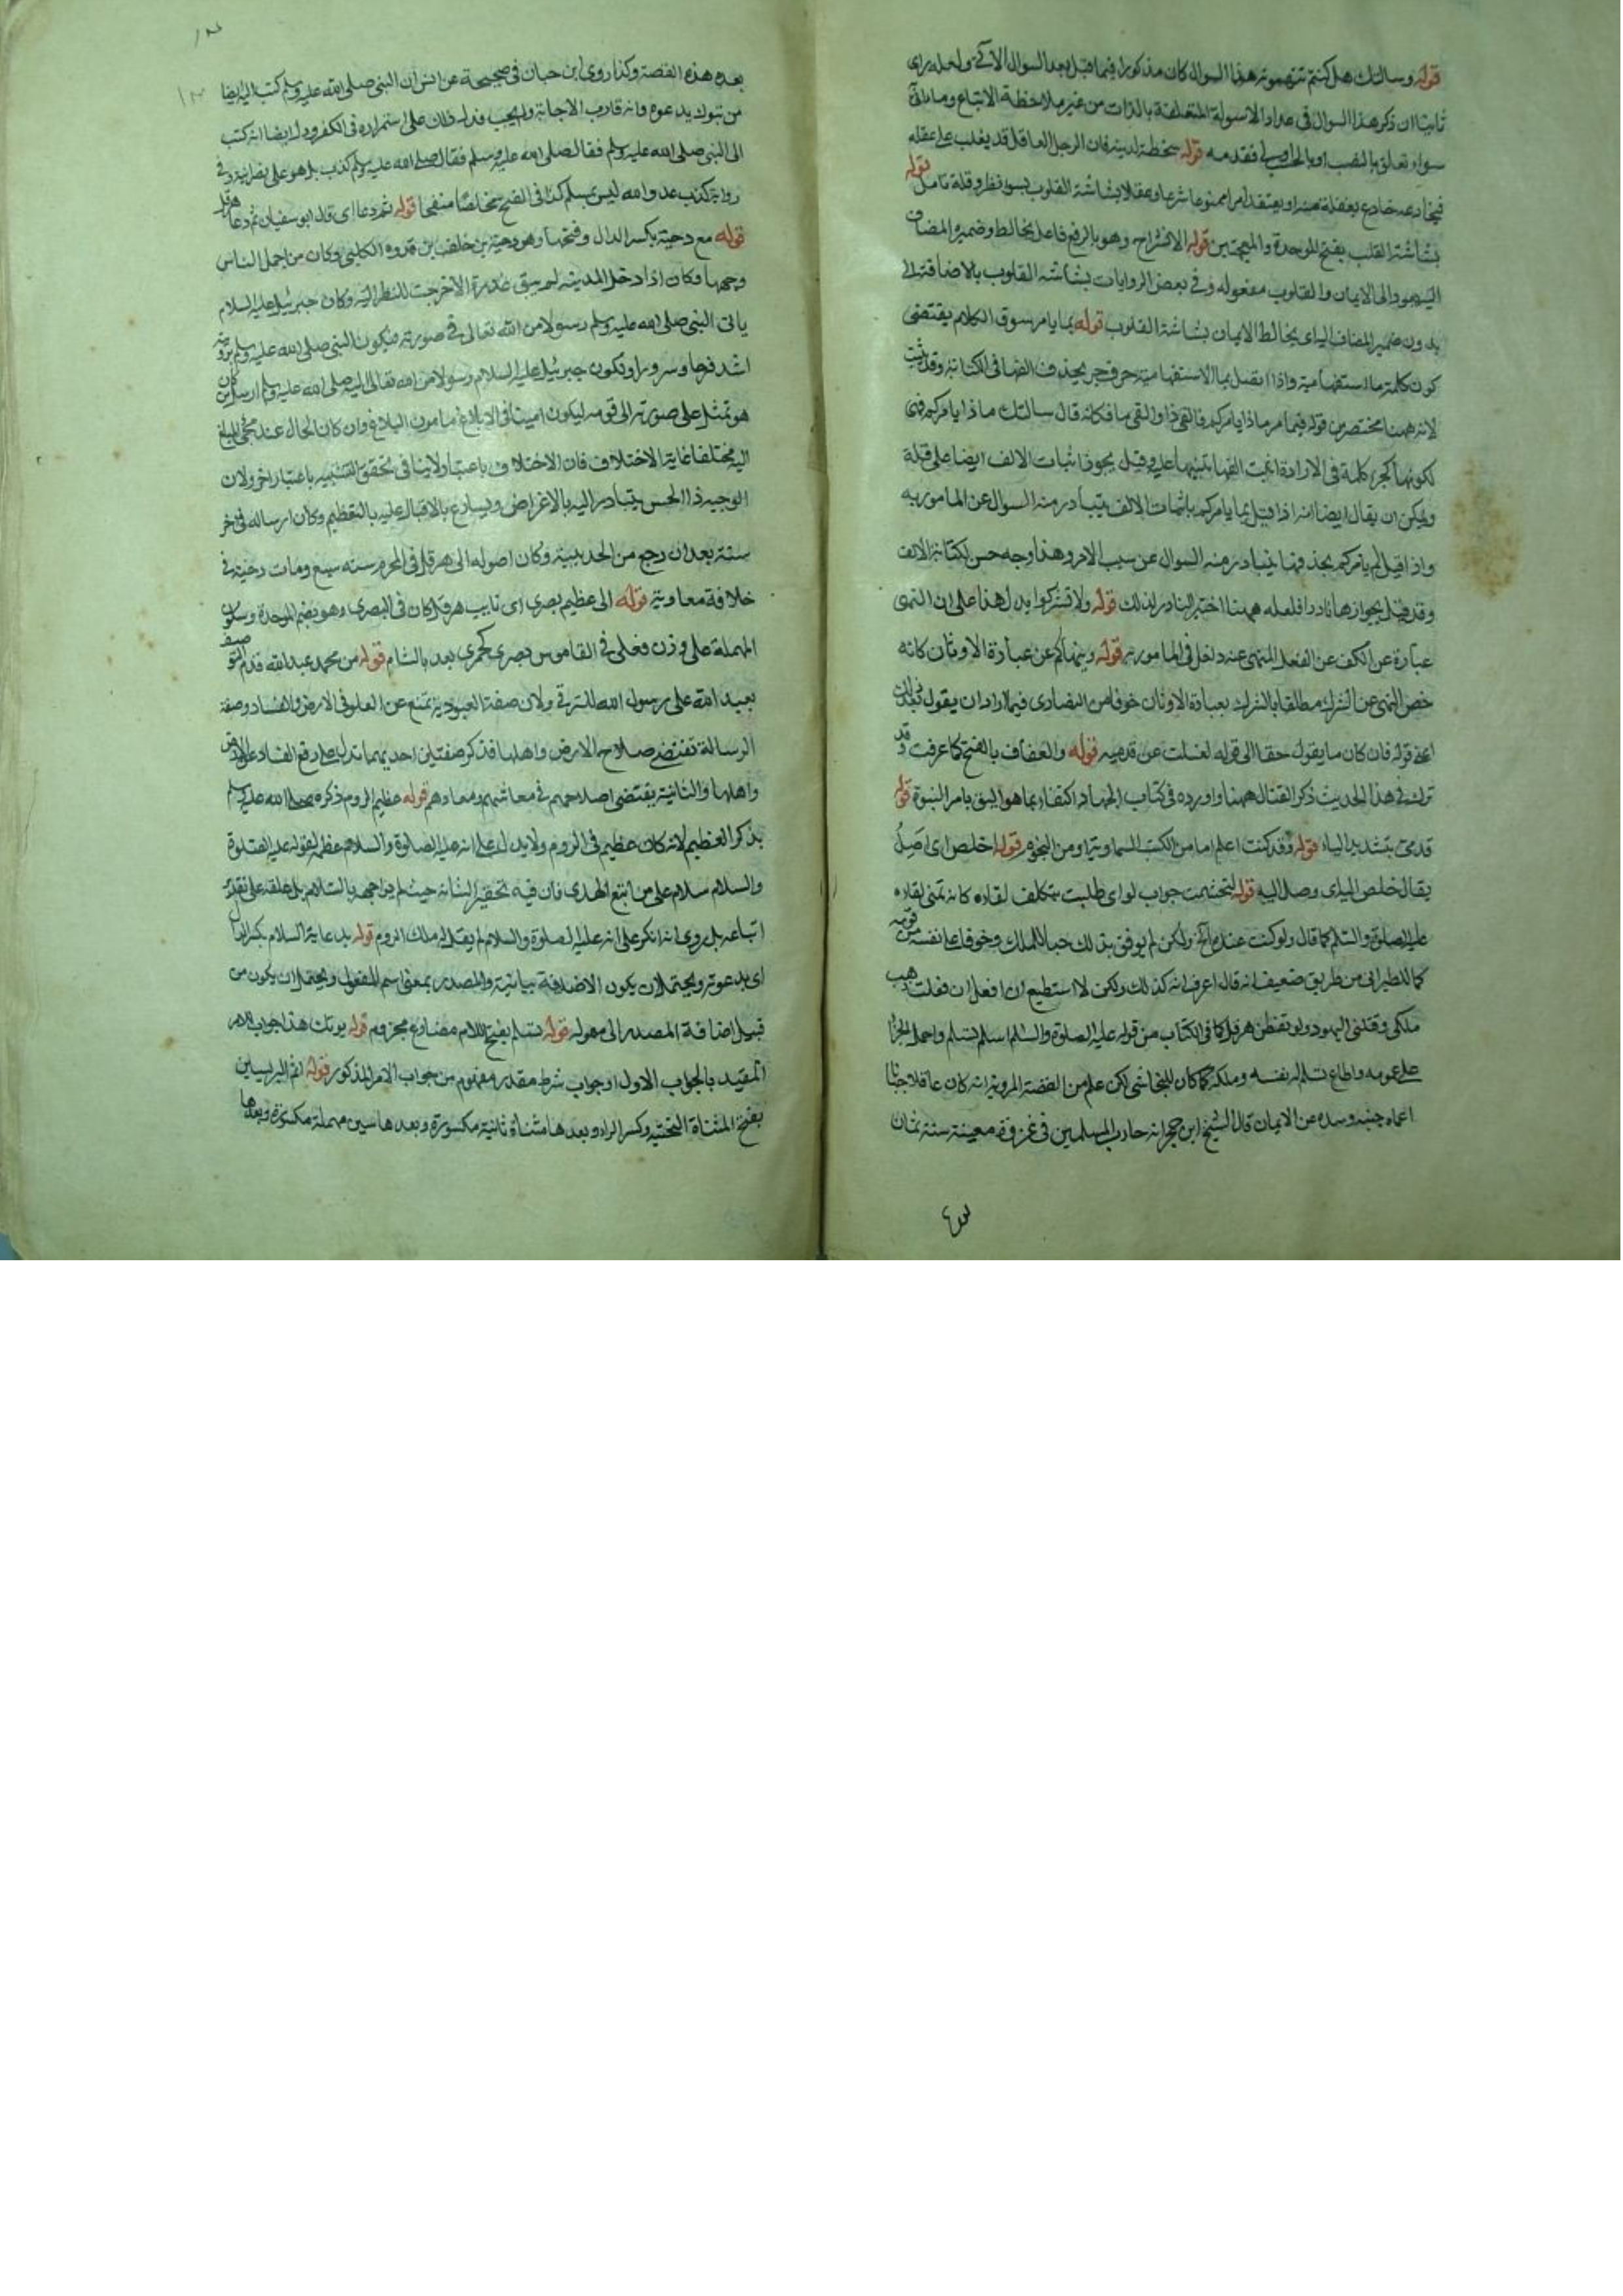 قوله وسالتك هل كنتم تتهمونه هذا السوال كان مذكورا فيما قبل بعد السوال الآتي ولعله راى
ثانيا ان ذكر هذا السوال في عداد الاسولة المتعلقة بالذات من غير ملاحظة الاتباع وما
سواه تعلق بالنصب او بالحال فقدمه قوله سخطة لدينه فان الرجل العاقل قد يغلب على عقله
فيخادعه خادع بغفلة منه او يعتقد امرا ممنوعا شرعا وعقلا بشاشة القلوب بسوء نظر وقلة تامل قوله
بشاشة القلب بفتح الموحدة والمعجمتين قوله الانشراح وهو بالرفع فاعل يخالط وضمير المضاف
اليه يعود الى الايمان والقلوب مفعوله وفي بعض الروايات بشاشة القلوب بالاضافة
بدون ضمير المضاف اليه اى يخالط الايمان بشاشة القلوب قوله بما يامر سوق الكلام يقتضى
كون كلمة ما استفهامية واذا اتصل بما الاستفهامية حرف جر يحذف الفها في الكتابة وقد ثبت
لانه ههنا مختصر من قوله فيما مر ماذا يامركم فالقى ذا والقى ما فكانه قال سالتك ماذا يامركم فهى
لكونها كجزء كلمة في الارادة اثبت الفها تنبيها عليه وقيل يجوز اثبات الالف ايضا على قلة
ويمكن ان يقال ايضا انه اذا قيل بما يامركم باثبات الالف يتبادر منه السوال عن المامور به
واذا قيل بم يامركم بحذفها يتبادر منه السوال عن سبب الامر وهذا وجه حسن لكتابة الالف
وقد قيل بجوازها نادرا فلعله ههنا اختير النادر لذلك قوله ولا تشركوا يدل هذا على ان النهى
عبارة عن الكف عن الفعل المنهى عنه داخل في المامور به قوله وينهاكم عن عبادة الاوثان كانه
خص النهى عن الشرك مطلقا بالشرك بعبادة الاوثان خوفا من النصارى فيما اراد ان يقول بعد ذلك
اعنى قوله فان كان ما يقول حقا الى قوله لغسلت عن قدميه قوله والعفاف بالفتح كما عرفت وقد
ترك في هذا الحديث ذكر القتال ههنا واورده في كتاب الجهاد اكتفاء بما هو اليق بامر النبوة قوله
قدمي بتشديد الياء قوله وقد كنت اعلم اما من الكتب السماوية او من النجوم قوله اخلص اى اصل
يقال خلص اليه اى وصل اليه قوله لتجشمت جواب لو اى طلبت بتكلف لقاءه كانه تمنى لقاءه
عليه الصلوة والسلام كما قال ولو كنت عنده الخ ولكن لم يوفق بذلك حبا للملك وخوفا على نفسه من قومه
كما للطبرانى من طريق ضعيف انه قال اعرف انه كذلك ولكن لا استطيع ان افعل ان فعلت ذهب
ملكى وقتلنى اليهود ولو تفطن هرقل كما في الكتاب من قوله عليه الصلوة والسلام اسلم تسلم واحمل الجزا
على عمومه واطاع تسلم له نفسه وملكه كما كان للنجاشى لكن علم من القصة المروية انه كان عاقلا جبانا
اعماه جنبه وسده عن الايمان قال الشيخ ابن حجر انه حارب المسلمين في غزوة معينة سنة ثمان
بعد هذه القصة وكذا روى ابن حبان في صحيحه عن انس ان النبي صلى الله عليه وسلم كتب اليه ايضا
من تبوك يدعوه وانه قارب الاجابة ولم يجب فدل ذلك على استمراره في الكفر ودل ايضا انه كتب
الى النبي صلى الله عليه وسلم فقال صلى الله عليه وسلم فقال صلى الله عليه وسلم كذب بل هو على نصرانيته وفي
رواية كذب عدو الله ليس بمسلم كذا في الفتح ملخصا منقحا قوله ثم دعا اى قال ابو سفيان ثم دعا هرقل
قوله مع دحية بكسر الدال وفتحها وهو دحية بن خليفة بن فروه الكلبي وكان من اجمل الناس
وجها وكان اذا دخل المدينة لم يبق مخدرة الا خرجت للنظر اليه وكان جبرئيل عليه السلام
ياتى النبي صلى الله عليه وسلم رسولا من الله تعالى في صورته فيكون النبي صلى الله عليه وسلم برويته
اشد فرحا وسرورا وتكون جبرئيل عليه السلام رسولا من الله تعالى اليه صلى الله عليه وسلم ارسل من كان
هو تمثل على صورته الى قومه ليكون امينا في الابلاغ مامون البلاغ وان كان الحال عند مجئ المبلغ
اليه مختلفا غاية الاختلاف فان الاختلاف باعتبار لا ينافى تحقق التشبيه باعتبار اخر ولان
الوجيه ذا الحس يتبادر اليه بالاغراض ويسارع بالاقبال عليه بالتعظيم وكان ارساله في اخر
سنة بعد ان رجع من الحديبية وكان اصوله الى هرقل في المحرم سنة سبع ومات دحية في
خلافة معاوية قوله الى عظيم بصرى اى نايب هرقل كان في البصرى وهو بضم الموحدة وسكون
المهملة على وزن فعلى في القاموس بصرى كحمرى بعد بالشام قوله من محمد عبد الله قدم التوصيف
بعبد الله على رسول الله للترقى ولان صفة العبودية تمنع عن العلو في الارض والفساد وصفة
الرسالة تقتضى صلاح الارض واهلها فذكر صفتين احديهما تدل على دفع الفساد عن الارض
واهلها والثانية يقتضى اصلاحهم في معاشهم ومعادهم قوله عظيم الروم ذكره صلى الله عليه وسلم
بذكر العظيم لانه كان عظيم في الروم ولا يدل على انه عليه الصلوة والسلام عظمه لقوله عليه الصلوة
والسلام سلام على من اتبع الهدى فان فيه تحقير الشانه حيث لم يواجهه بالسلام بل علقه على تقدير
اتباعه بل روى انه انكر على انه عليه الصلوة والسلام لم يقل له ملك الروم قوله بدعاية السلام بكسر الدال
اى بدعوته ويحتمل ان يكون الاضافة بيانية والمصدر بمعنى اسم المفعول ويحتمل ان يكون من
قبيل اضافة المصدر الى قوله تسلم بفتح اللام مضارع مجزوم قوله يوتك هذا جواب الامر
المقيد بالجواب الاول او جواب شرط مقدر مفهوم من جواب الامر المذكور قوله اثم اليريسين
بفتح المثناة التحتية وكسر الراء وبعدها مثناة ثانية مكسورة وبعدها سين مهملة مكسورة وبعدها